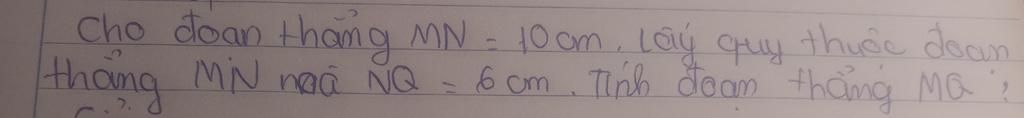 Cho đoạn thẳng MN = 10 cm. Lấy quy thuộc đoạn
thẳng MN mà NQ = 6 cm. Tính đoạn thẳng MQ ?